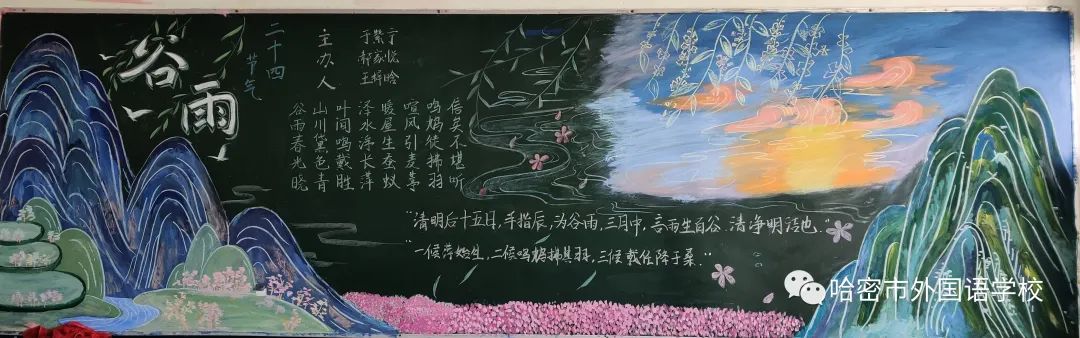 谷雨
二十四
节气
主办人
王梓晗
谷雨春光晓
山川黛色青
叶间鸣戴胜
泽水浮长萍
暖屋生蚕蚁
喧风引麦葶
鸣鸠徒拂羽
信矣不堪听
"清明后十五日,斗指辰,为谷雨,三月中,言雨生百谷.清净明洁也."
"一候萍始生,二候鸣鸠拂其羽,三候戴任降于桑."
哈密市外国语学校